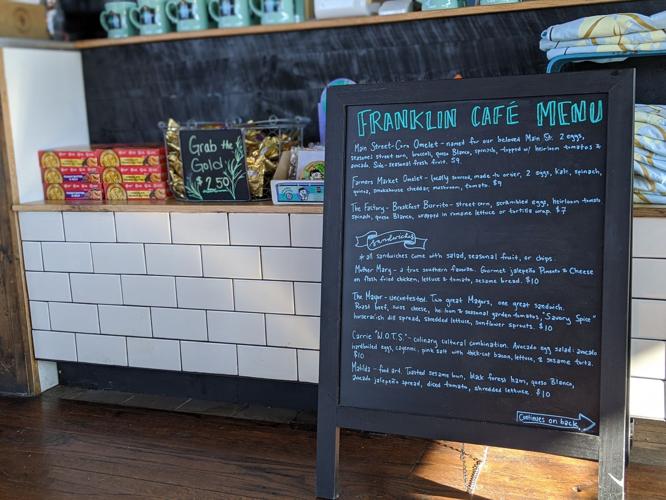 Grab the
Gold!
$2.50
FRANKLIN CAFÉ MENU
Main Street-Corn Omelet - named for our beloved Main St. 2 eggs,
seasoned street corn, broccoli, queso Blanco, spinach, topped w/ heirloom tomatoes &
avocado. Side-seasonal fresh fruit. $9.
Farmers Market Omelet - locally sourced, made to order, 2 eggs, Kale, spinach,
quinoa, smokehouse cheddar, mushroom, tomato. $9
The Factory - Breakfast Burrito - street corn, scrambled eggs, heirloom tomato
spinach, queso Blanco, wrapped in romaine lettuce or tortilla wrap. $7
Sandwiches
* all sandwiches come with salad, seasonal fruit, or chips.
Mother Mary - a true southern favorite. Gourmet jalapeño Pimento & Cheese
on flash fried chicken, lettuce & tomato, sesame bread. $10
The Mayor - uncontested. Two great Mayors, one great sandwich.
Roast beef, swiss cheese, heirloom & seasonal garden tomatoes, "Savory Spice"
horseradish dill spread, shredded lettuce, sunflower sprouts. $10
Carrie "W.O.T.S." - culinary cultural combination. Avocado egg salad: avocado
hardboiled eggs, cayenne, pink salt with thick-cut bacon, lettuce, & sesame torta.
$10
Matilda - food art. Toasted sesame bun, black forest ham, queso Blanco,
avocado jalapeño spread, diced tomato, shredded lettuce. $10
Continues on back